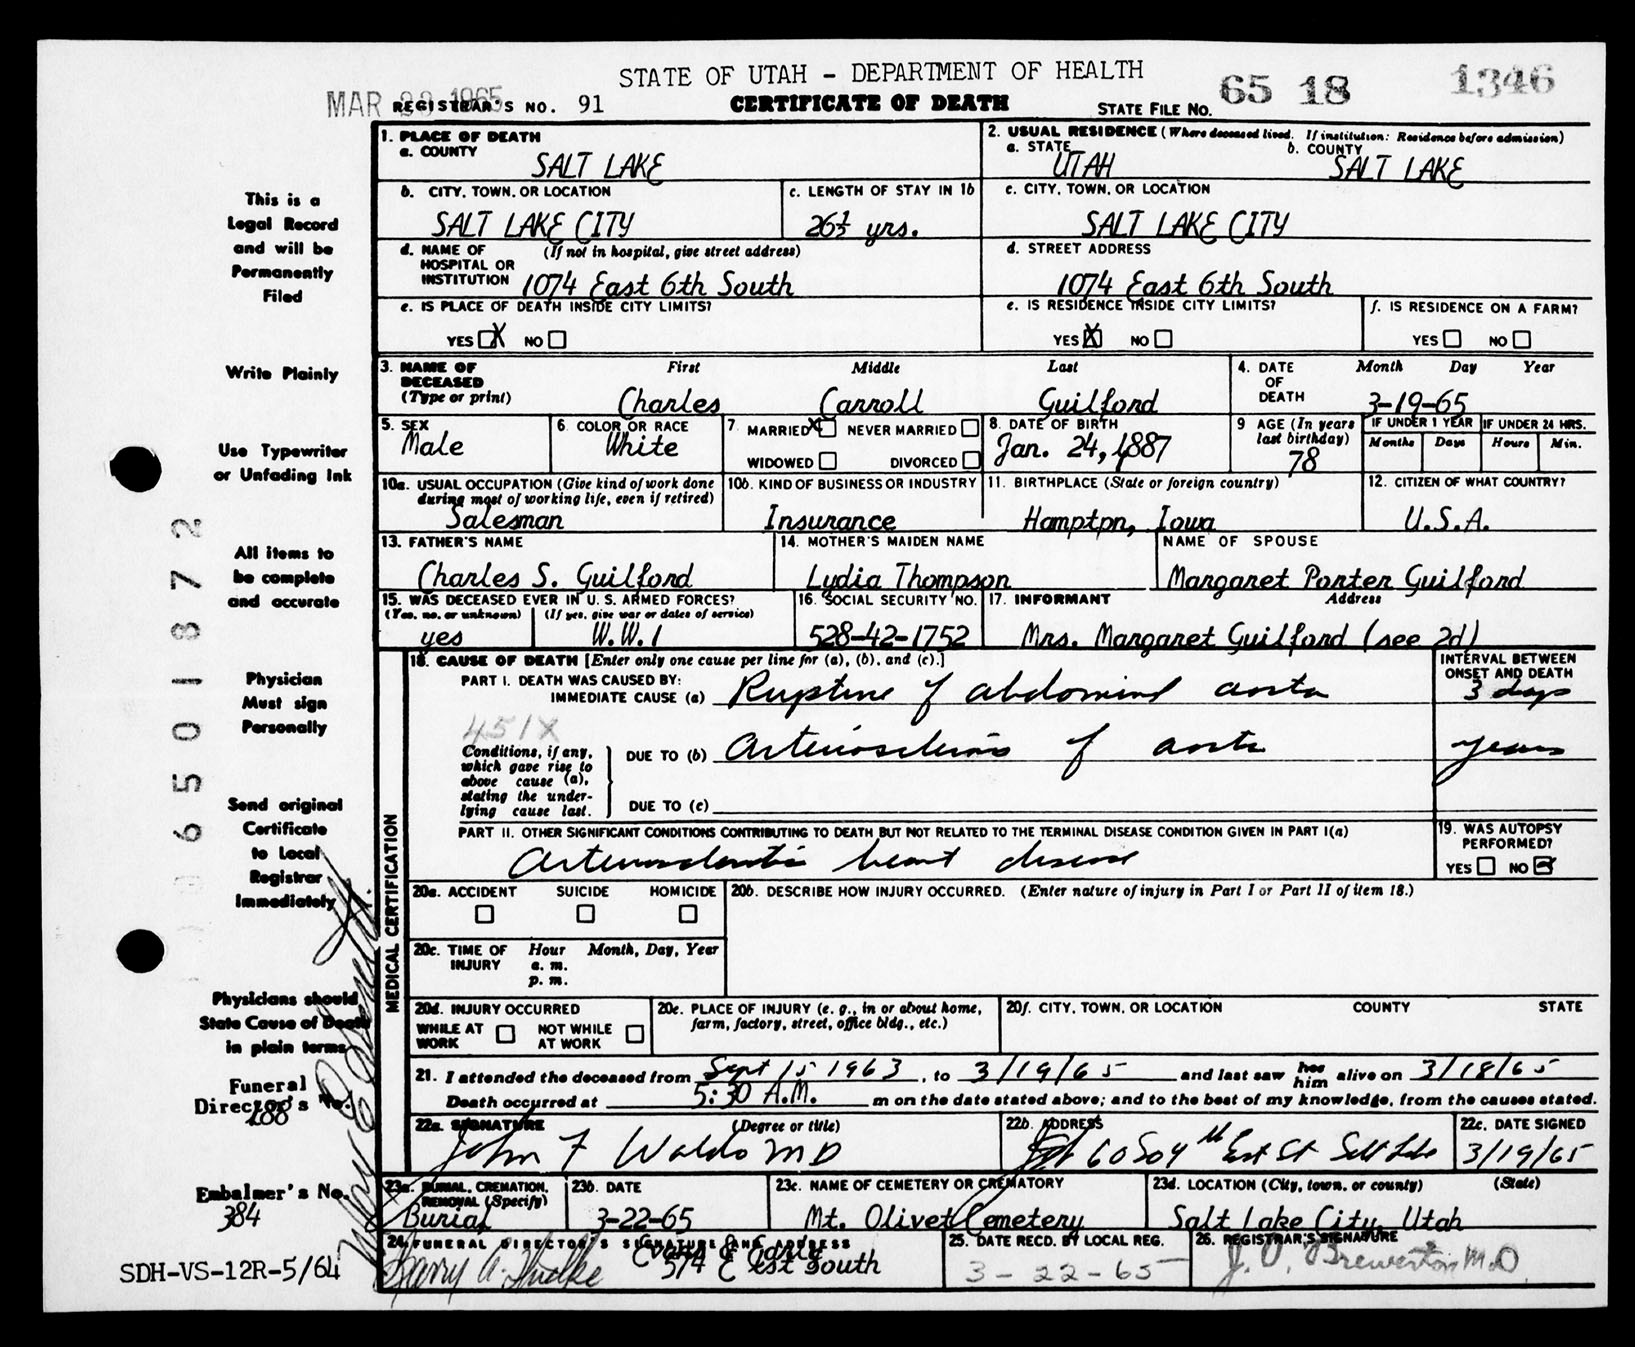 STATE OF UTAH - DEPARTMENT OF HEALTH
MAR 1965 REGISTRAR'S NO. 91 CERTIFICATE OF DEATH STATE FILE NO. 65 18 1346
1. PLACE OF DEATH
a. COUNTY
SALT LAKE
2. USUAL RESIDENCE (Where deceased lived. If institution: Residence before admission)
a. STATE b. COUNTY
UTAH SALT LAKE
b. CITY, TOWN, OR LOCATION
SALT LAKE CITY
c. LENGTH OF STAY IN 1b
26½ yrs.
c. CITY, TOWN, OR LOCATION
SALT LAKE CITY
d. NAME OF (If not in hospital, give street address)
HOSPITAL OR
INSTITUTION 1074 East 6th South
d. STREET ADDRESS
1074 East 6th South
e. IS PLACE OF DEATH INSIDE CITY LIMITS?
YES X NO
e. IS RESIDENCE INSIDE CITY LIMITS?
YES X NO
f. IS RESIDENCE ON A FARM?
YES NO
3. NAME OF First Middle Last
DECEASED
(Type or print) Charles Carroll Guilford
4. DATE Month Day Year
OF
DEATH 3-19-65
5. SEX
Male
6. COLOR OR RACE
White
7. MARRIED X NEVER MARRIED
WIDOWED DIVORCED
8. DATE OF BIRTH
Jan. 24, 1887
9 AGE (In years
last birthday)
78
IF UNDER 1 YEAR IF UNDER 24 HRS.
Months Days Hours Min.
10a. USUAL OCCUPATION (Give kind of work done
during most of working life, even if retired)
Salesman
10b. KIND OF BUSINESS OR INDUSTRY
Insurance
11. BIRTHPLACE (State or foreign country)
Hamptpn, Iowa
12. CITIZEN OF WHAT COUNTRY?
U.S.A.
13. FATHER'S NAME
Charles S. Guilford
14. MOTHER'S MAIDEN NAME
Lydia Thompson
NAME OF SPOUSE
Margaret Porter Guilford
15. WAS DECEASED EVER IN U. S. ARMED FORCES?
(Yes, no, or unknown) (If yes, give war or dates of service)
yes W.W.1
16. SOCIAL SECURITY NO.
528-42-1752
17. INFORMANT Address
Mrs. Margaret Guilford (see 2d)
18. CAUSE OF DEATH [Enter only one cause per line for (a), (b), and (c).]
INTERVAL BETWEEN
ONSET AND DEATH
PART I. DEATH WAS CAUSED BY:
IMMEDIATE CAUSE (a) Rupture of abdominal aorta 3 days
451X
Conditions, if any,
which gave rise to
above cause (a),
stating the under-
lying cause last.
DUE TO (b) Arteriosclerosis of aorta years
DUE TO (c)
PART II. OTHER SIGNIFICANT CONDITIONS CONTRIBUTING TO DEATH BUT NOT RELATED TO THE TERMINAL DISEASE CONDITION GIVEN IN PART I(a)
Arteriosclerotic heart disease
19. WAS AUTOPSY
PERFORMED?
YES NO
20a. ACCIDENT SUICIDE HOMICIDE
20b. DESCRIBE HOW INJURY OCCURRED. (Enter nature of injury in Part I or Part II of item 18.)
20c. TIME OF Hour Month, Day, Year
INJURY a. m.
p. m.
20d. INJURY OCCURRED
WHILE AT NOT WHILE
WORK AT WORK
20e. PLACE OF INJURY (e. g., in or about home,
farm, factory, street, office bldg., etc.)
20f. CITY, TOWN, OR LOCATION COUNTY STATE
21. I attended the deceased from Sept 15 1963, to 3/19/65 and last saw her him alive on 3/18/65
Death occurred at 5:30 A.M. m on the date stated above; and to the best of my knowledge, from the causes stated.
22a. SIGNATURE (Degree or title)
John F Waldo MD
22b. ADDRESS
60 So 4th East St Salt Lake
22c. DATE SIGNED
3/19/65
23a. BURIAL, CREMATION,
REMOVAL (Specify)
Burial
23b. DATE
3-22-65
23c. NAME OF CEMETERY OR CREMATORY
Mt. Olivet Cemetery
23d. LOCATION (City, town, or county) (State)
Salt Lake City, Utah
24. FUNERAL DIRECTOR'S SIGNATURE AND ADDRESS
Evans & Early
574 E 1st South
25. DATE RECD. BY LOCAL REG.
3-22-65
26. REGISTRAR'S SIGNATURE
J. O. Brewerton M.D.
MEDICAL CERTIFICATION
This is a
Legal Record
and will be
Permanently
Filed
Write Plainly
Use Typewriter
or Unfading Ink
All items to
be complete
and accurate
Physician
Must sign
Personally
Send original
Certificate
to Local
Registrar
Immediately
Physicians should
State Cause of Death
in plain terms
Funeral
Director's No.
188
Embalmer's No.
384
SDH-VS-12R-5/64